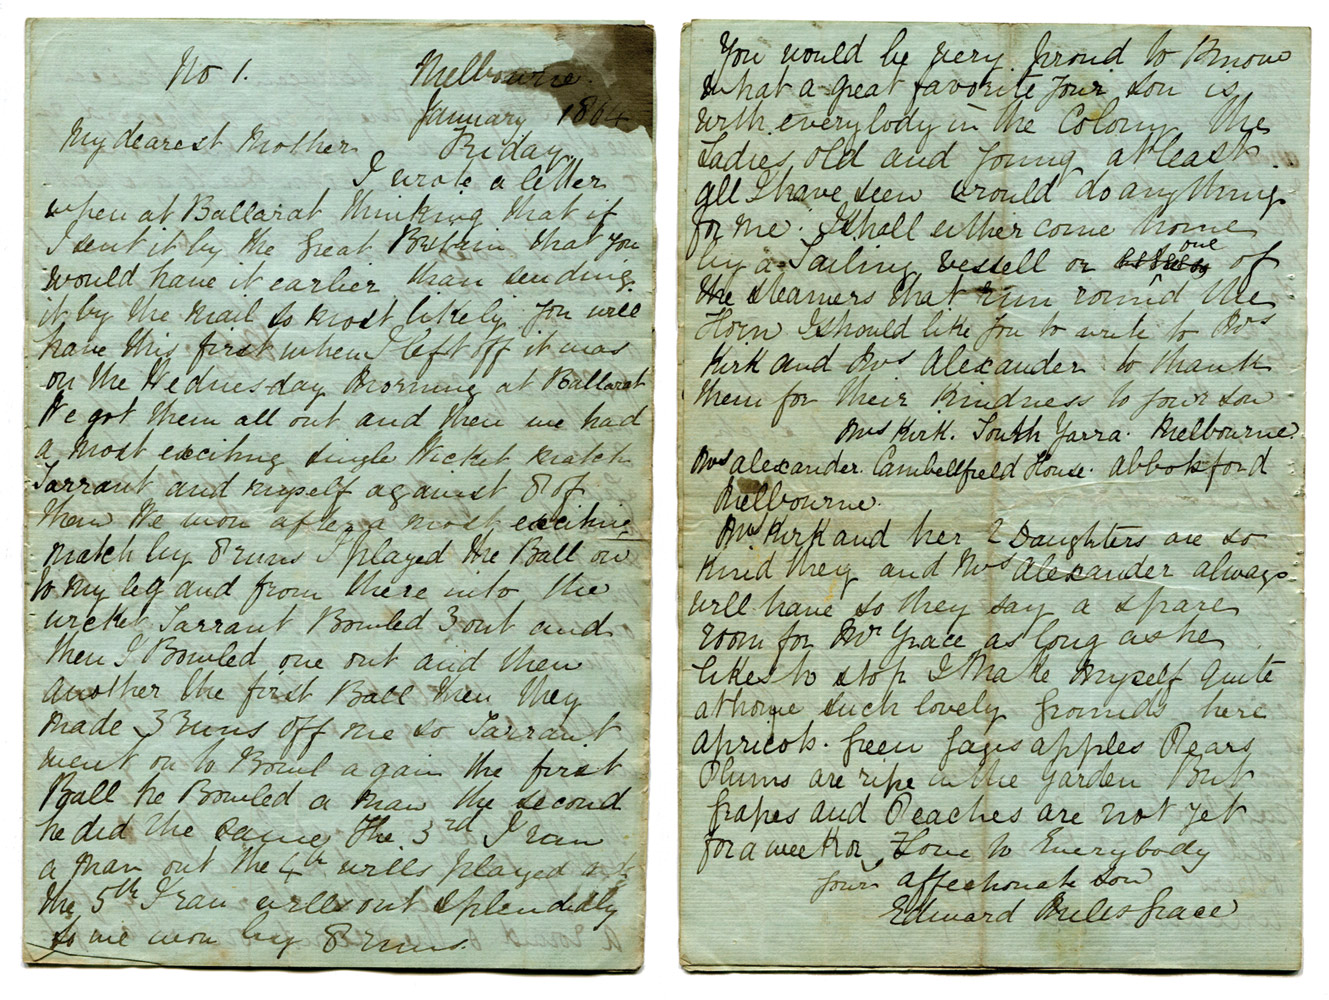 No 1.
Melbourne.
January 1864
My dearest Mother Friday
I wrote a letter
when at Ballarat thinking that if
I sent it by the Great Britain that you
would have it earlier than sending
it by the mail so most likely you will
have this first when I left off it was
on the Wednesday Morning at Ballarat
We got them all out and then we had
a most exciting single Wicket match
Tarrant and myself against 8 of
them We won after a most exciting
match by 8 runs I played the Ball on
to my leg and from there into the
wicket Tarrant Bowled 3 out and
then I Bowled one out and then
another the first Ball then they
made 3 runs off me so Tarrant
went on to Bowl again the first
Ball he Bowled a man the second
he did the same, the 3rd I ran
a man out the 4th wills played
the 5th I ran wills out splendidly
so we won by 8 runs.
You would be very proud to know
what a great favorite your son is
with everybody in the Colony the
Ladies, old and young at least
all I have seen would do anything
for me. I shall either come home
by a Sailing vessell or one of
the steamers that run round the
Horn I should like you to write to Mrs
Kirk and Mrs Alexander to thank
them for their kindness to your son
Mrs Kirk. South Yarra. Melbourne.
Mrs Alexander. Cambellfield House. Abbotsford
Melbourne.
Mrs Kirk and her 2 Daughters are so
kind they and Mrs Alexander always
will have so they say a spare
room for Mr Grace as long as he
likes to stop I make myself quite
at home such lovely grounds here
apricots. Green Gages apples Pears
Plums are ripe in the Garden But
Grapes and Peaches are not yet
for a week or Love to Everybody
Your affectionate son
Edward Mills Grace